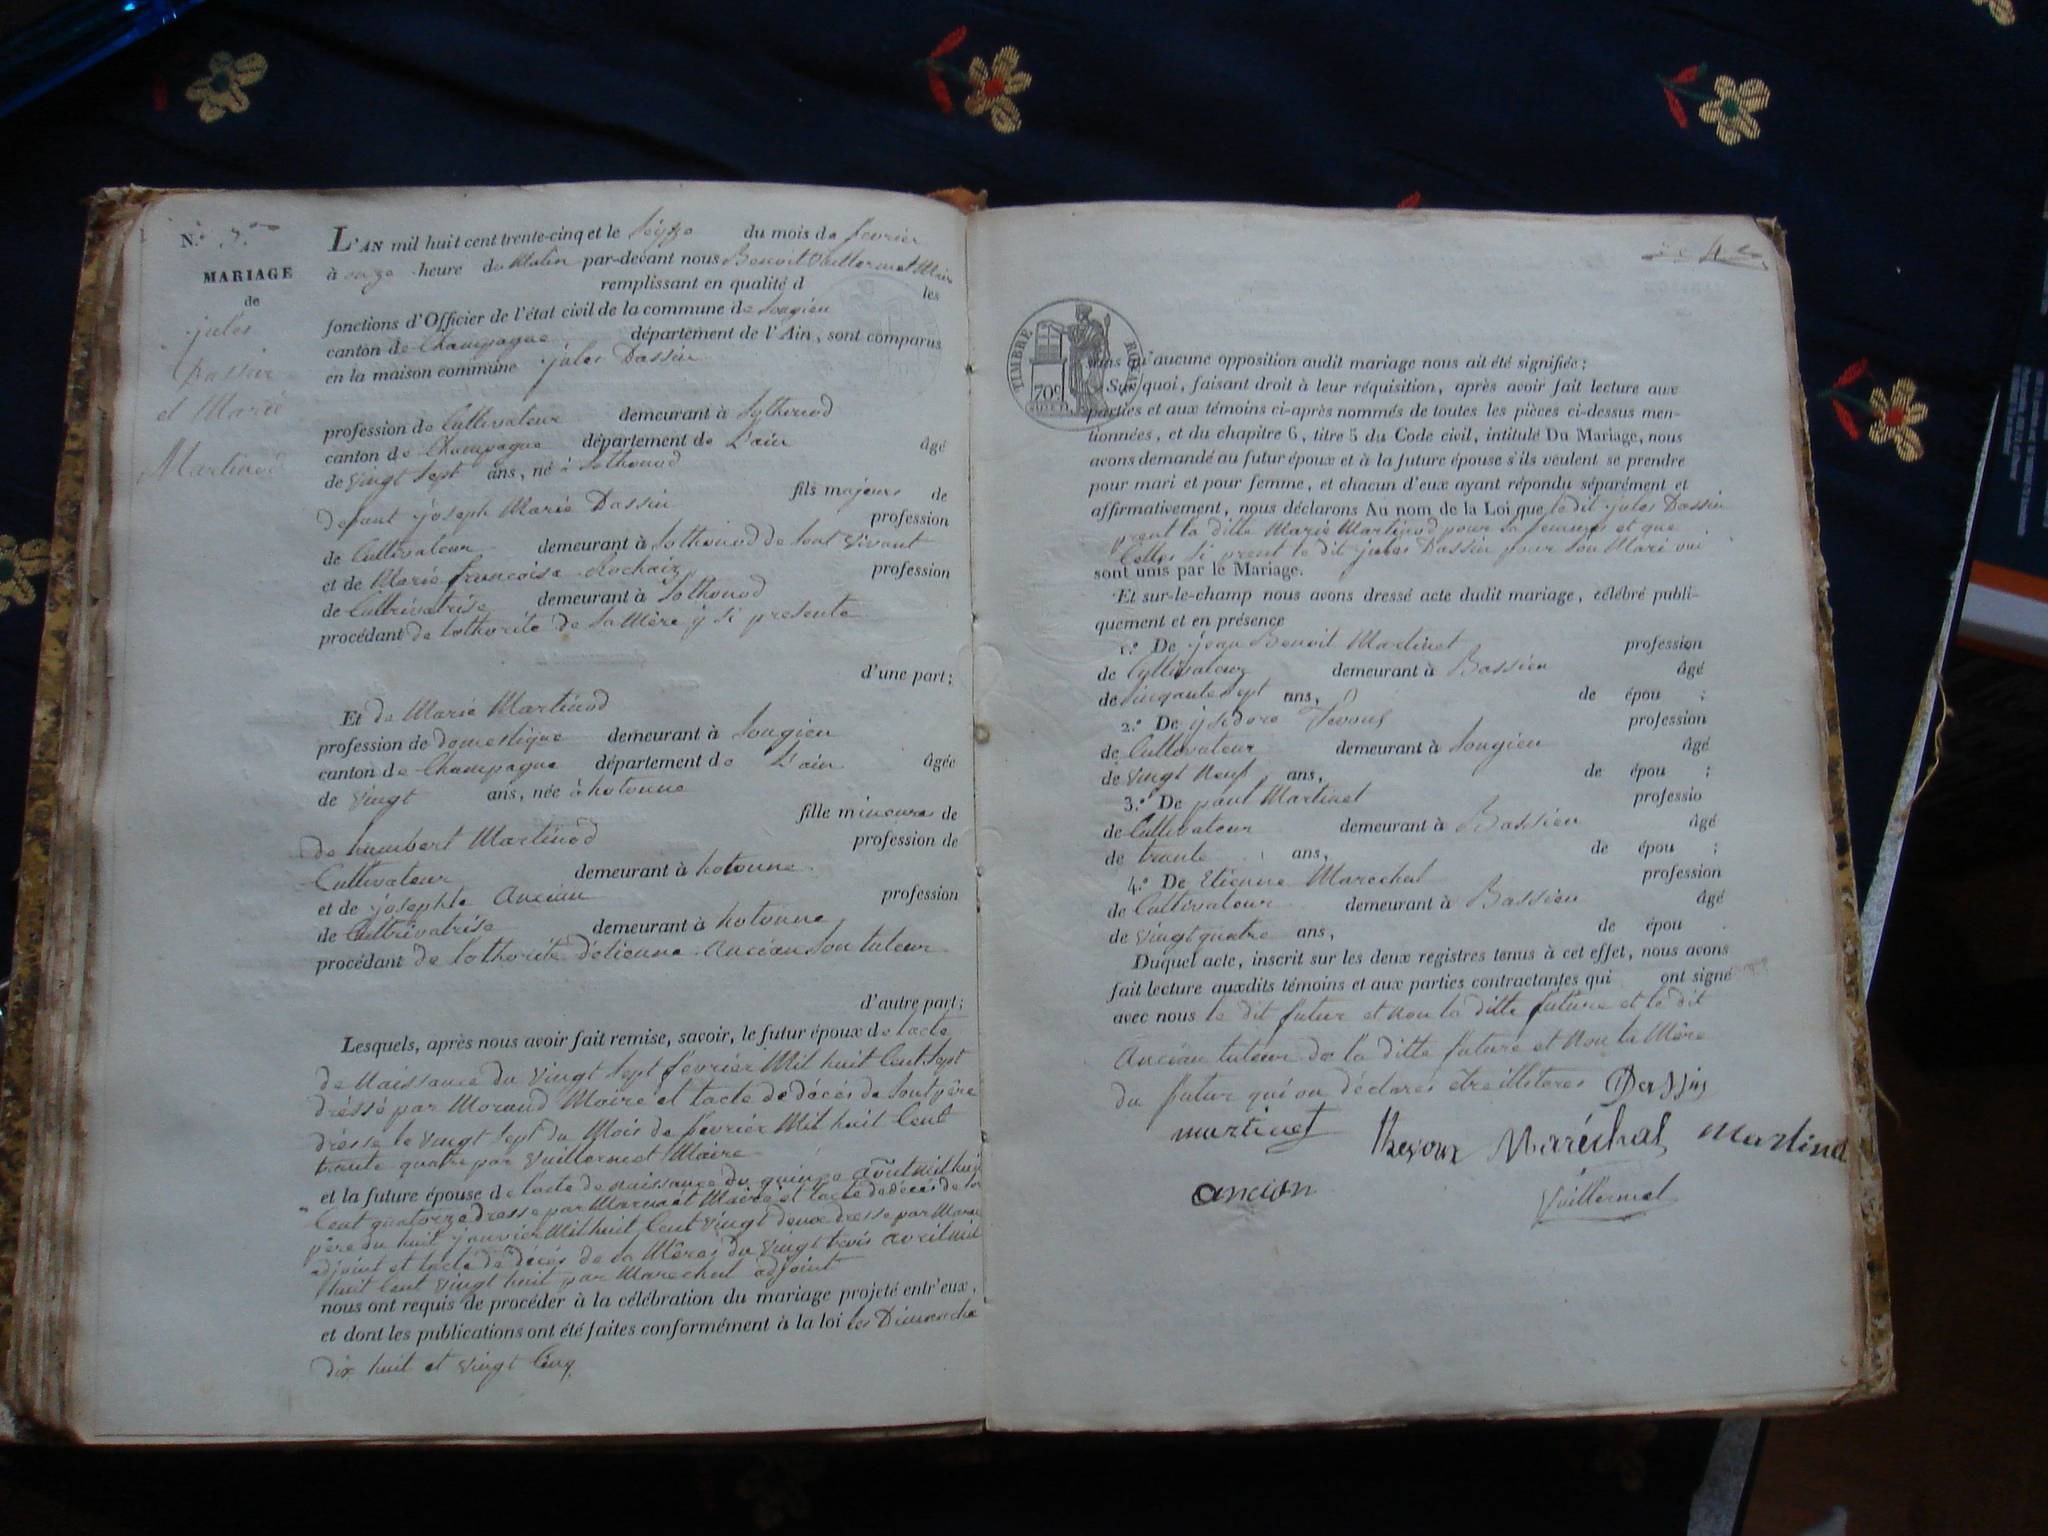 N.º 3.
MARIAGE
de
jules
Dassin
et Marie
Martinod
L'AN mil huit cent trente-cinq et le seize du mois de fevrier
à onze heure du Matin par-devant nous Benoit Vuillermet Maire
remplissant en qualité d les
fonctions d'Officier de l'état civil de la commune de Songieu
canton de Champagne département de l'Ain, sont comparus
en la maison commune jules Dassin
profession de Cultivateur demeurant à Sothonod
canton de Champagne département de L'ain âgé
de vingt sept ans, né à Sothonod
fils majeur de
defunt joseph Marie Dassin profession
de Cultivateur demeurant à Sothonod de Sont vivant
et de Marie francoise Rochaix profession
de Cultrivatrise demeurant à Sothonod
procédant de lothorité de Sa Mère y si presente
d'une part;
Et de Marie Martinod
profession de domestique demeurant à Songieu
canton de Champagne département de L'ain âgée
de vingt ans, née à hotonne
fille mineure de
de humbert Martinod profession de
Cultivateur demeurant à hotonne
et de josephte Ancian profession
de Cultrivatrise demeurant à hotonne
procédant de lothorité détienne Ancian Son tuteur
d'autre part;
Lesquels, après nous avoir fait remise, savoir, le futur époux de lacte
de Naissance du vingt Sept fevrier Mil huit Cent Sept
dréssé par Morand Maire et lacte de décés de Sont père
drésse le vingt Sept du Mois de fevrier Mil huit Cent
trante quatre par Vuillermet Maire
et la future épouse de lacte de naissance du quinze août mil huit
Cent quatorze dresse par Marmet Maire et lacte de décés de son
père du huit janvier Mil huit Cent vingt deux dresse par
adjoint et lacte de décés de la Mères du vingt trois avril mil
huit Cent vingt huit par Marechal adjoint
nous ont requis de procéder à la célébration du mariage projeté entr'eux,
et dont les publications ont été faites conformément à la loi les Dimenche
dix huit et vingt Cinq
TIMBRE ROYAL
70c
sans qu'aucune opposition audit mariage nous ait été signifiée;
Sur quoi, faisant droit à leur réquisition, après avoir fait lecture aux
parties et aux témoins ci-après nommés de toutes les pièces ci-dessus men-
tionnées, et du chapitre 6, titre 5 du Code civil, intitulé Du Mariage, nous
avons demandé au futur époux et à la future épouse s'ils veulent se prendre
pour mari et pour femme, et chacun d'eux ayant répondu séparément et
affirmativement, nous déclarons Au nom de la Loi que le dit jules Dassin
prent la ditte Marie Martinod pour Sa femme et que
Celle Si prent le dit jules Dassin pour Son Mari oui
sont unis par le Mariage.
Et sur-le-champ nous avons dressé acte dudit mariage, célébré publi-
quement et en présence
1.º De jean Benoit Martinet profession
de Cultivateur demeurant à Bassieu âgé
de Cinqante Sept ans, de épou ;
2.º De ysidore Thevoux profession
de Cultivateur demeurant à Songieu âgé
de vingt Neuf ans, de épou ;
3.º De paul Martinet professio
de Cultivateur demeurant à Bassieu âgé
de trante ans, de épou ;
4.º De Etienne Marechal profession
de Cultivateur demeurant à Bassieu âgé
de vingt quatre ans, de épou
Duquel acte, inscrit sur les deux registres tenus à cet effet, nous avons
fait lecture auxdits témoins et aux parties contractantes qui ont signé
avec nous le dit futur et non la ditte future et le dit
Ancian tuteur de la ditte future et Non la Mère
du futur qui on déclares etre illiteres Dassin
martinet Thevoux Maréchal Martinet
ancian Vuillermet